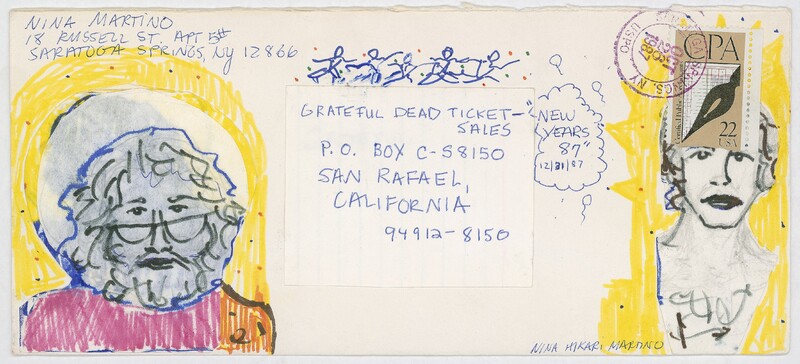 NINA MARTINO
18 RUSSELL ST. APT 5H
SARATOGA SPRINGS, NY 12866
GRATEFUL DEAD TICKET-
SALES
P.O. BOX C-S8150
SAN RAFAEL,
CALIFORNIA
94912-8150
"NEW
YEARS
87"
12/31/87
CPA
Certified Public
22
USA
USPO
NINA HIKARI MARTINO